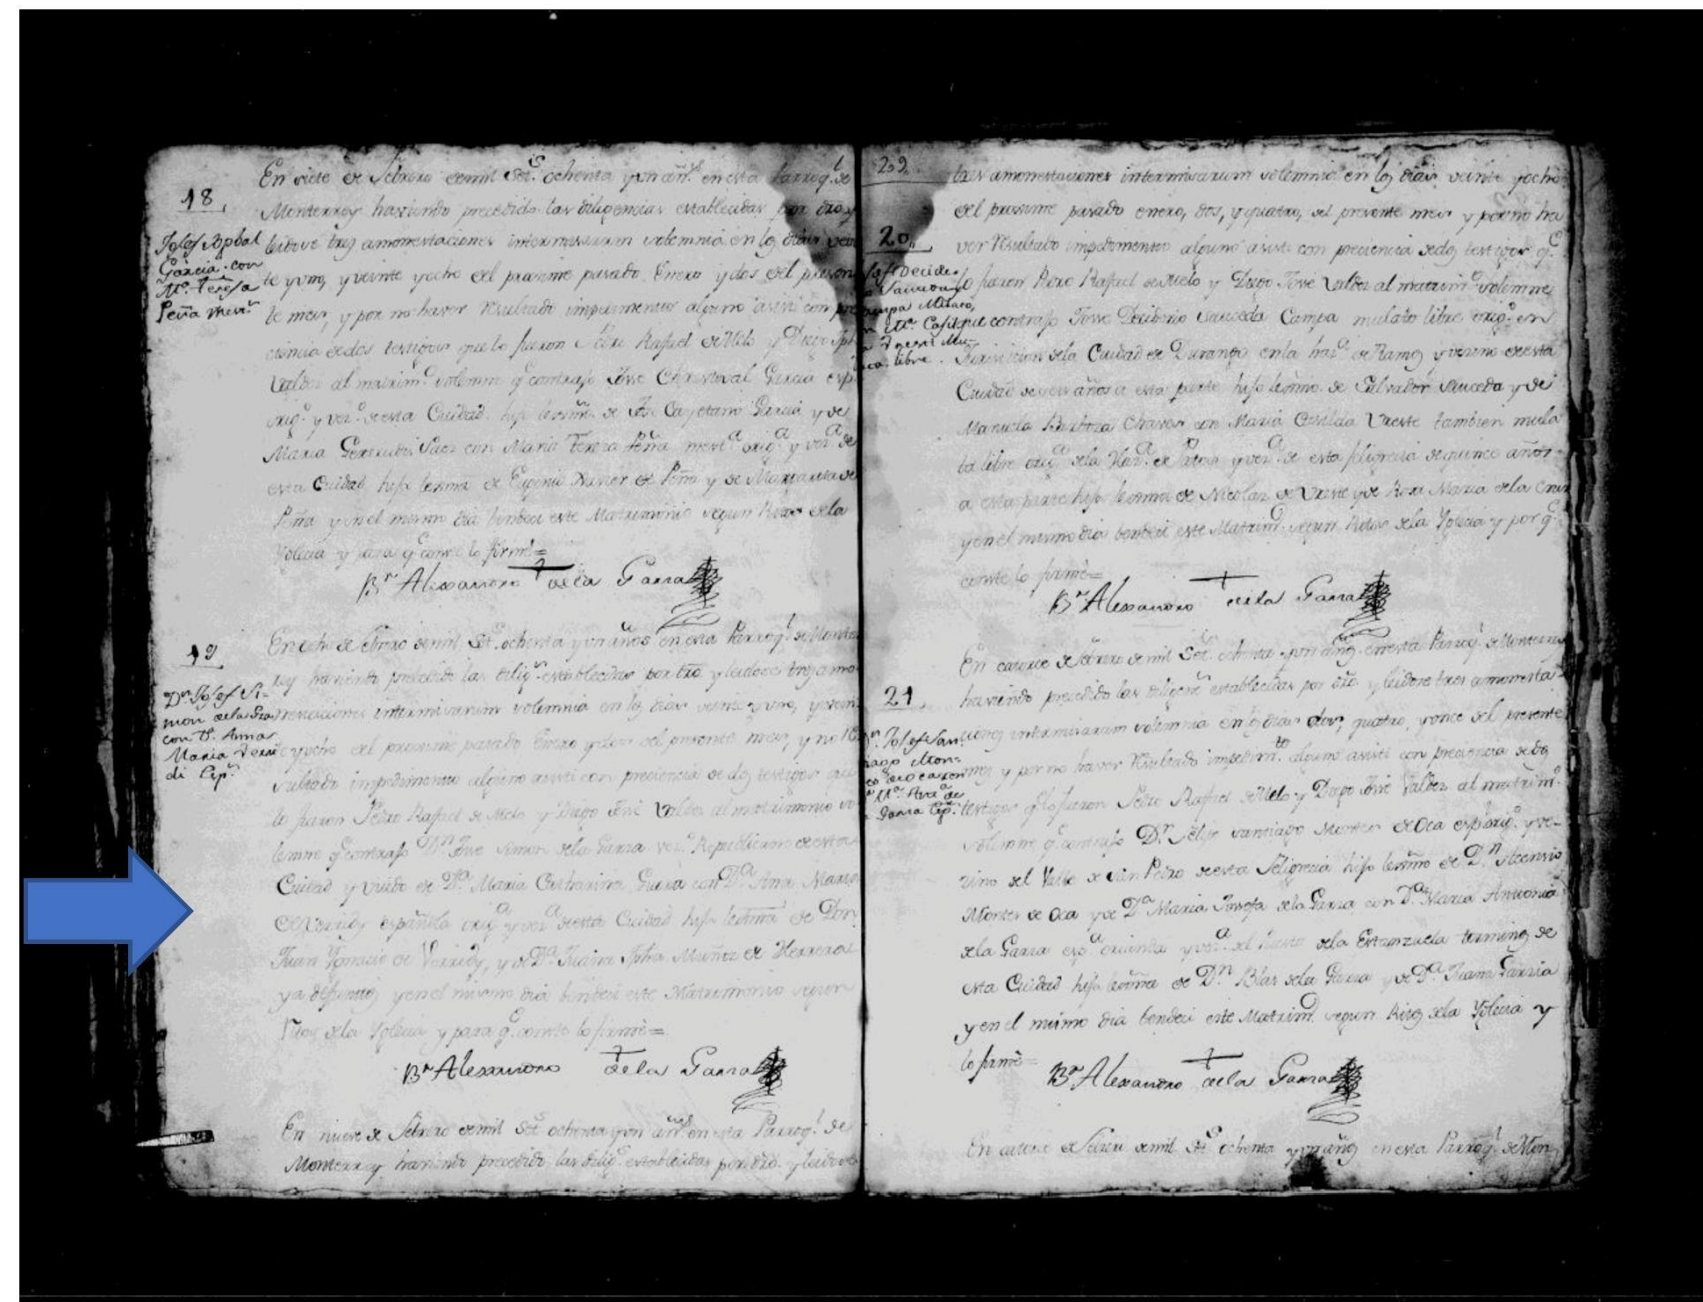 18,
Josef Xpbal
Garcia con
Mª. Teresa
Peña
En siete de Febrero de mil Setˢ. ochenta y un años en esta Parroq.ˡ de
Monterrey haviendo precedido las diligencias establecidas por dro. y
leidose tres amonestaciones intermissarum solemnia en los dias vein
te y uno, y veinte y ocho del proximo pasado Enero y dos del presen
te mes, y por no haver resultado impedimento alguno asisti con pre
ciencia de dos testigos que lo fueron Pedro Rafael de Melo y Diego
Valdes al matrim.º solemne q.ᵉ contrajo Jose Christoval Garcia esp.
orig.º y vez.º de esta Ciudad hijo lexmo. de Jose Cayetano Garcia y de
Maria Gertrudis con Maria Tereza Peña mest.ᵃ orig.ᵃ y vez.ᵃ de
esta Ciudad hija lexma. de Eugenio Xavier de Peña y de Margarita de
Peña y en el mismo dia bendeci este Matrimonio segun Ritos de la
Yglecia y para q.ᵉ conste lo firmè=
B.ʳ Alexandro de la Garza
19
D.ⁿ Josef Si-
mon de la Gar
con D. Anna
Maria Verri
di Esp.ˢ
En ocho de Febrero de mil Setˢ. ochenta y un años en esta Parroq.ˡ de Monter
rey haviendo precedido las dilig.ˢ establecidas por dro. y leidose tres amo
nestaciones intermissarum solemnia en los dias veinte y uno, y vein
te y ocho del proximo pasado Enero y dos del presente mes, y no re
sultado impedimento alguno asisti con preciencia de dos testigos que
lo fueron Pedro Rafael de Melo y Diego José Valdes al matrimonio so
lemne q.ᵉ contrajo D.ⁿ Jose Simon de la Garza vez.º Republicano de esta
Ciudad y viudo de D.ᵃ Maria Catharina Guerra con D.ᵃ Ana Maria
de Verridy española orig.ᵃ y vez.ᵃ de esta Ciudad hija lexma. de Don
Juan Ygnacio de Verridy, y de D.ᵃ Juana Jpha Muñoz de Herrera
ya defuntos y en el mismo dia bendeci este Matrimonio segun
Ritos de la Yglecia y para q.ᵉ conste lo firmè=
B.ʳ Alexandro de la Garza
En nueve de Febrero de mil Setˢ. ochenta y un años en esta Parroq.ˡ de
Monterrey haviendo precedido las dilig.ˢ establecidas por dro. y leidose
209.
20,
Mª. Casil
libre.
tres amonestaciones intermissarum solemnia en los dias veinte y ocho
del proximo pasado enero, dos, y quatro, del presente mes y por no ha
ver resultado impedimento alguno asisti con preciencia de dos testigos q.ᵉ
lo fueron Pedro Rafael de Melo y Diego Jose Valdes al matrim.º solemne
que contrajo Josse Deciderio Sauceda Campa mulato libre orig.º en
Jurisdicion de la Ciudad de Durango en la haz.ᵃ de Ramos y vecino de esta
Ciudad de seis años a esta parte hijo lexmo. de Salvador Sauceda y de
Manuela Barboza Chaves con Maria Casilda Vreste tambien mula
ta libre orig.ᵃ de la Haz.ᵃ de Patos y vez.ᵃ de esta feligrecia de quince años
a esta parte hija lexma. de Nicolas de Vreste y de Rosa Maria de la Cruz
y en el mismo dia bendeci este Matrim.º segun Ritos de la Yglecia y por q.ᵉ
conste lo firmè=
B.ʳ Alexandro de la Garza
21,
D.ⁿ Josef San
tiago Mon
de Oca con
Mª. Ant.ᵃ de
Garza Esp.ˢ
En catorce de Febrero de mil Setˢ. ochenta y un años en esta Parroq.ˡ de Monterrey
haviendo precedido las diligenc.ˢ establecidas por dro. y leidose tres amonesta
ciones intermissarum solemnia en los dias dos, quatro, y once del presente
mes y por no haver resultado impedim.ᵗᵒ alguno asisti con preciencia de dos
testigos q.ᵉ lo fueron Pedro Rafael de Melo y Diego Jose Valdes al matrim.º
solemne q.ᵉ contrajo D.ⁿ Santiago Montes de Oca esp. orig.º y ve-
zino del Valle de San Pedro de esta feligrecia hijo lexmo. de D.ⁿ Acencio
Montes de Oca y de D.ᵃ Maria Josefa de la Garza con D.ᵃ Maria Antonia
de la Garza esp.ᵃ oriunda y vez.ᵃ del Puesto de la Estanzuela terminos de
esta Ciudad hija lexma. de D.ⁿ Blas de la Garza y de D.ᵃ Juana Garzia
y en el mismo dia bendeci este Matrim.º segun Ritos de la Yglecia y
lo firmè=
B.ʳ Alexandro de la Garza
En catorce de Febrero de mil Setˢ. ochenta y un años en esta Parroq.ˡ de Mon